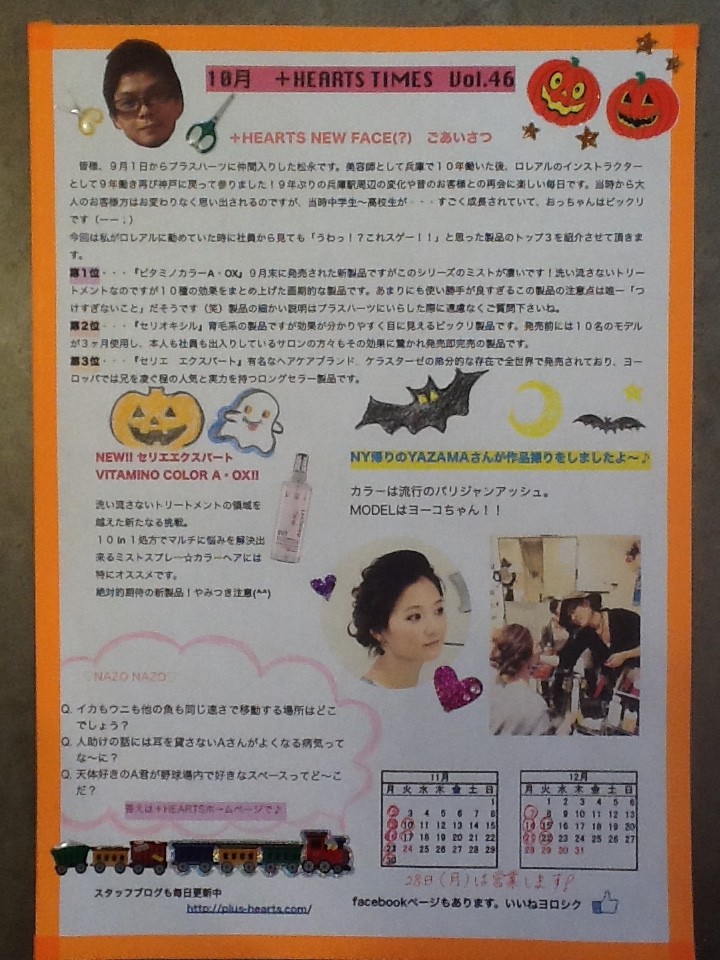 10月　＋HEARTS TIMES　Vol.46
＋HEARTS NEW FACE(?)　ごあいさつ
皆様、９月１日からプラスハーツに仲間入りした松永です。美容師として兵庫で１０年働いた後、ロレアルのインストラクター
として９年働き再び神戸に戻って参りました！９年ぶりの兵庫駅周辺の変化や昔のお客様との再会に楽しい毎日です。当時から大
人のお客様方はお変わりなく思い出されるのですが、当時中学生〜高校生が・・・すごく成長されていて、おっちゃんはビックリ
です（ーー；）
今回は私がロレアルに勤めていた時に社員から見ても「うわっ！？これスゲー！！」と思った製品のトップ３を紹介させて頂きま
す。
第１位・・・『ビタミノカラーA・OX』９月末に発売された新製品ですがこのシリーズのミストが凄いです！洗い流さないトリー
トメントなのですが１０種の効果をまとめ上げた画期的な製品です。あまりにも使い勝手が良すぎるこの製品の注意点は唯一「つ
けすぎないこと」だそうです（笑）製品の細かい説明はプラスハーツにいらした際に遠慮なくご質問下さいね。
第２位・・・『セリオキシル』育毛系の製品ですが効果が分かりやすく目に見えるビックリ製品です。発売前には１０名のモデル
が３ヶ月使用し、本人も社員も出入りしているサロンの方々もその効果に驚かれ発売即完売の製品です。
第３位・・・『セリエ　エクスパート』有名なヘアケアブランド、ケラスターゼの弟分的な存在で全世界で発売されており、ヨー
ロッパでは兄を凌ぐ程の人気と実力を持つロングセラー製品です。
NEW!! セリエエクスパート
VITAMINO COLOR A・OX!!
洗い流さないトリートメントの領域を
越えた新たなる挑戦。
１０in１処方でマルチに悩みを解決出
来るミストスプレー☆カラーヘアには
特にオススメです。
絶対的期待の新製品！やみつき注意(^^)
NY帰りのYAZAMAさんが作品撮りをしましたよ〜♪
カラーは流行のパリジャンアッシュ。
MODELはヨーコちゃん！！
♡NAZO NAZO♡
Q. イカもウニも他の魚も同じ速さで移動する場所はどこ
でしょう？
Q. 人助けの話には耳を貸さないAさんがよくなる病気って
な〜に？
Q. 天体好きのA君が野球場内で好きなスペースってど〜こ
だ？
答えは＋HEARTSホームページで♪
11月
月 火 水 木 金 土 日
1
2 3 4 5 6 7 8
9 10 11 12 13 14 15
16 17 18 19 20 21 22
23 24 25 26 27 28 29
30
12月
月 火 水 木 金 土 日
1 2 3 4 5 6
7 8 9 10 11 12 13
14 15 16 17 18 19 20
21 22 23 24 25 26 27
28 29 30 31
28日(月)は営業します!
スタッフブログも毎日更新中
http://plus-hearts.com/
facebookページもあります。いいねヨロシク